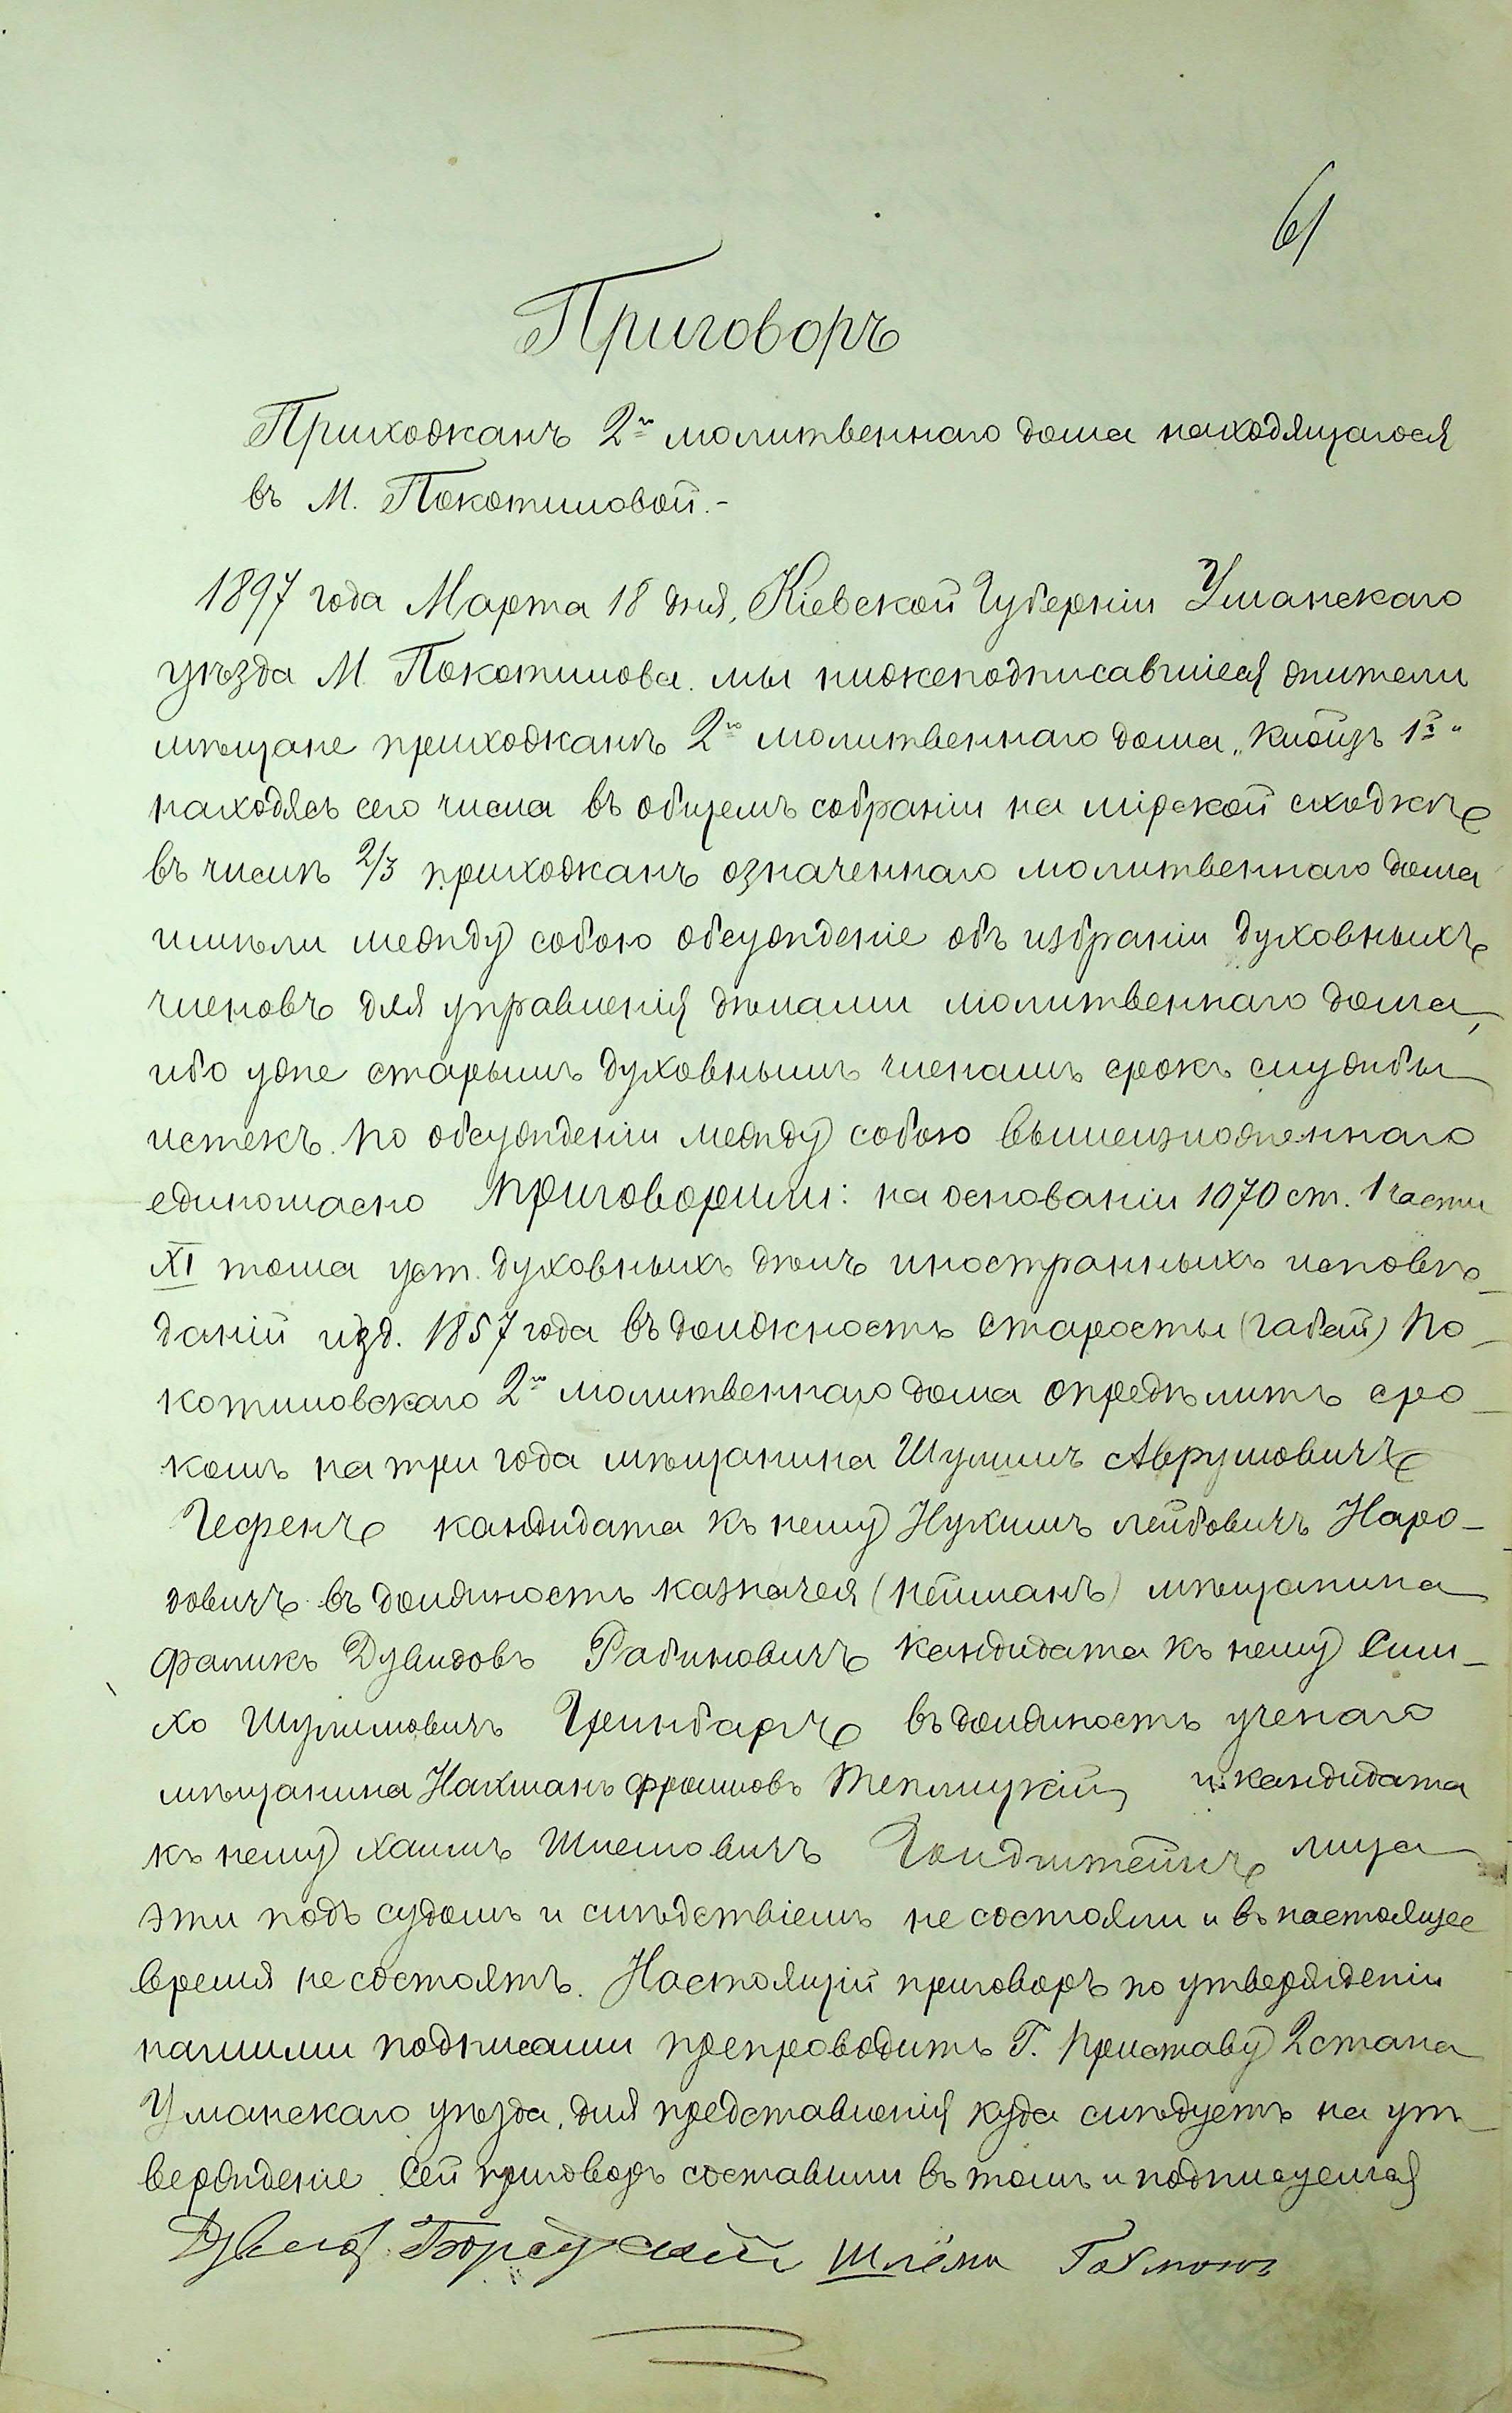 61
Приговоръ
Прихожанъ 2го молитвеннаго дома находящагося
въ М. Покотиловой.-
1897 года Марта 18 дня, Кіевской Губерніи Уманскаго
уѣзда М. Покотилова. мы нижеподписавшіеся жители
мѣщане прихожанъ 2го молитвеннаго дома
находясь сего числа въ общемъ собраніи на мірской сходкѣ
въ числѣ 2/3 прихожанъ означеннаго молитвеннаго дома
имѣли между собою обсужденіе объ избраніи духовныхъ
членовъ для управленія дѣлами молитвеннаго дома,
ибо уже старымъ духовнымъ членамъ срокъ службы
истекъ. по обсужденіи между собою вышеизложеннаго
единогласно приговорили: на основаніи 1070 ст. 1 части
XI тома уст. духовныхъ дѣлъ иностранныхъ исповѣ-
даній изд. 1857 года въ должность старосты (габай) По-
котиловскаго 2го молитвеннаго дома опредѣлить сро-
комъ на три года мѣщанина Шулимъ Аврумовичъ
Гефенъ кандидата къ нему Нухимъ Лейбовичъ Наро-
довичъ въ должность казначея (нейманъ) мѣщанина
Фаликъ Дувидовъ Рабиновичъ кандидата къ нему Сим-
хо Шулимовичъ Гринбаръ въ должность ученаго
мѣщанина Нахманъ Фроимовъ Теплицкій и кандидата
къ нему Хаимъ Шлемовичъ Гольдштейнъ лица
эти подъ судомъ и слѣдствіемъ не состояли и въ настоящее
время не состоятъ. Настоящій приговоръ по утвержденіи
нашими подписами препроводить Г. Приставу 2 стана
Уманскаго уѣзда, для представленія куда слѣдуетъ на ут-
вержденіе. Сей приговоръ составили въ томъ и подписуемся
Дувид Борсуский Шлёма